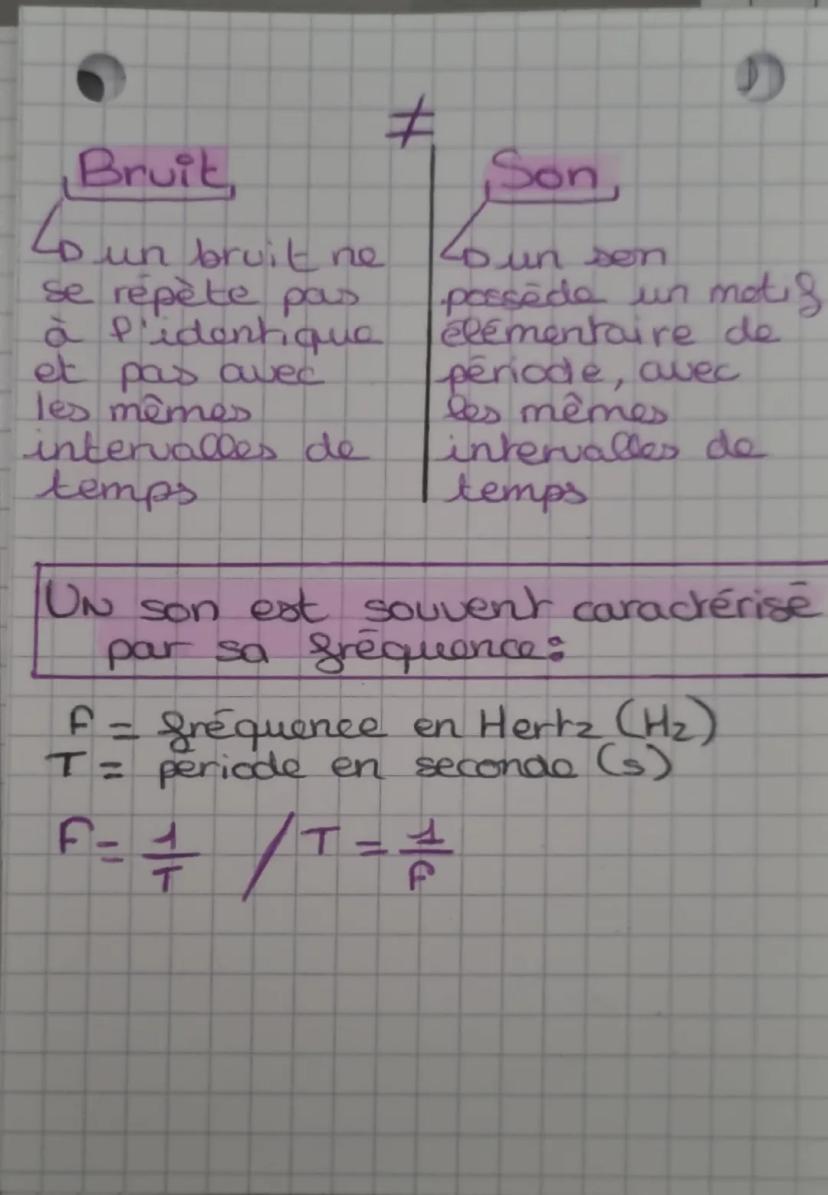 ≠
Bruit
un bruit ne
se répète pas
à l'identique
et pas avec
les mêmes
intervalles de
temps
Son
un son
possède un motif
élémentaire de
période, avec
les mêmes
intervalles de
temps
Un son est souvent caractérisé
par sa fréquence :
F = fréquence en Hertz (Hz)
T = période en seconde (s)
F = 1/T / T = 1/F